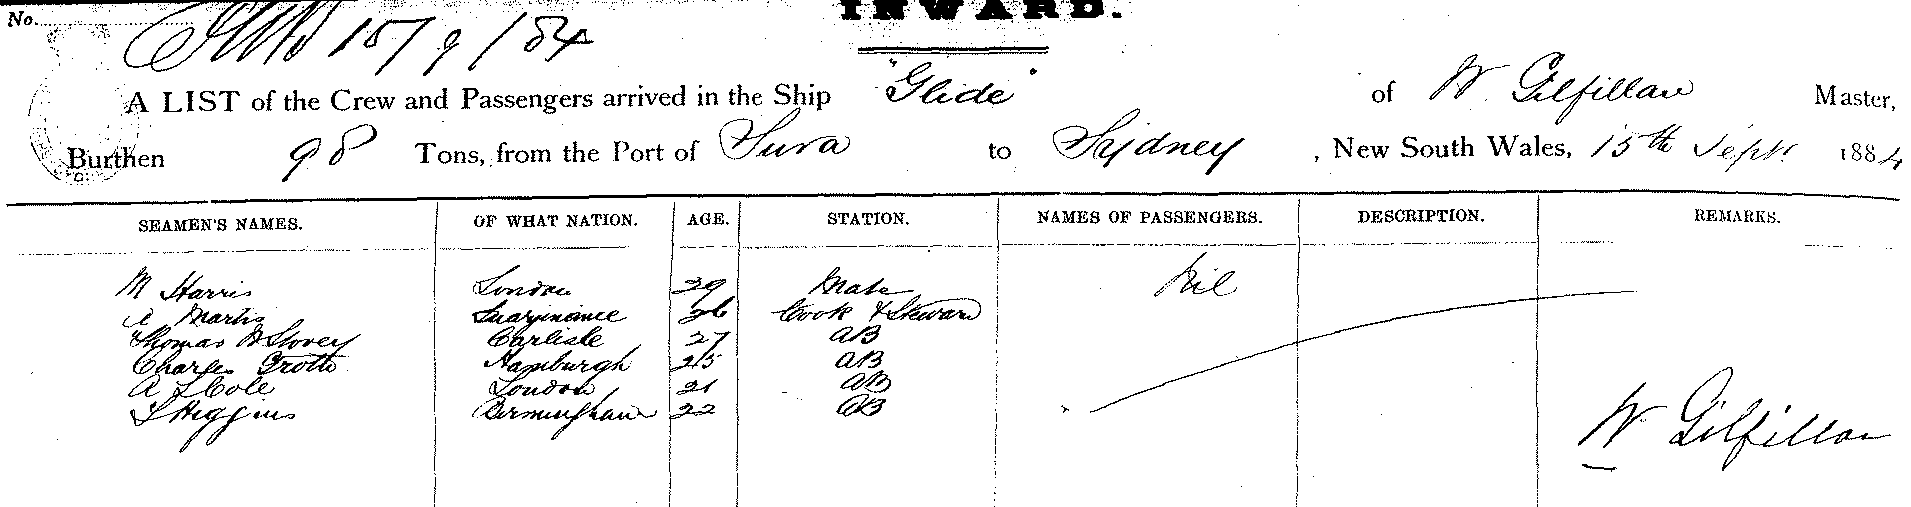 No.
INWARD.
15/9/84
A LIST of the Crew and Passengers arrived in the Ship "Glide" of W. Gilfillan Master,
Burthen 98 Tons, from the Port of Suva to Sydney, New South Wales, 15th Sept. 1884
SEAMEN'S NAMES. OF WHAT NATION. AGE. STATION. NAMES OF PASSENGERS. DESCRIPTION. REMARKS.
M Harris London 39 Mate Nil
A Martis 26 Cook & Steward
Thomas B Slovey Carlisle 27 AB
Charles Groth Hamburgh 25 AB
A L Cole London 21 AB
L Higgins Birmingham 22 AB
W Gilfillan